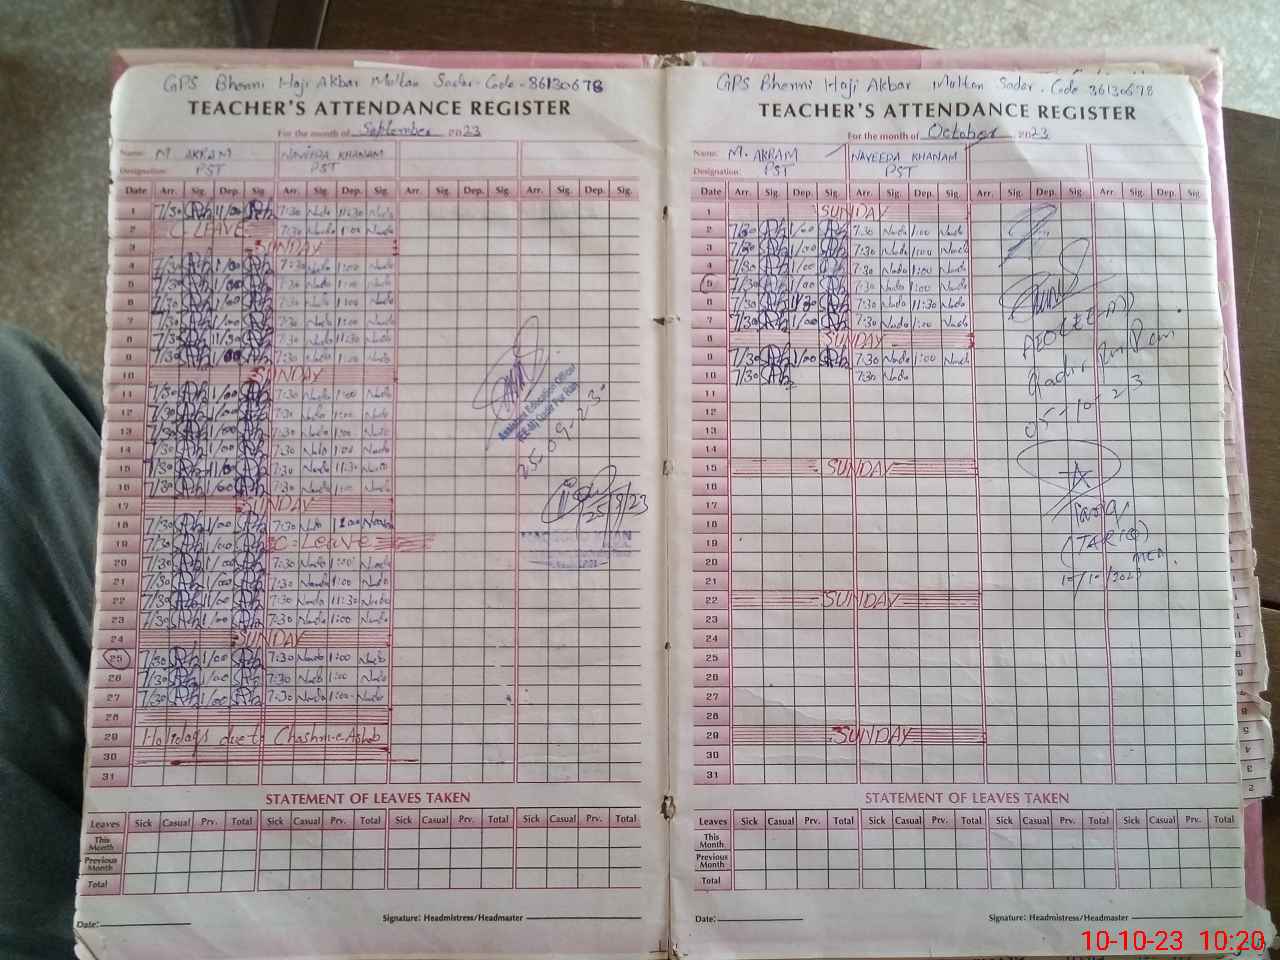 GPS Bhenni Haji Akbar Multan Sadar - Code - 36130678
TEACHER'S ATTENDANCE REGISTER
For the month of September 2023
Name: M. AKRAM NAVEEDA KHANAM
Designation: PST PST
Date Arr. Sig. Dep. Sig. Arr. Sig. Dep. Sig. Arr. Sig. Dep. Sig. Arr. Sig. Dep. Sig.
1 7/30 11/00 7:30 Nado 11:30 Nado
2 C LEAVE 7:30 Nado 1:00 Nado
3 SUNDAY
4 7/30 1/00 7:30 Nado 1:00 Nado
5 7/30 1/00 7:30 Nado 1:00 Nado
6 7/30 1/00 7:30 Nado 1:00 Nado
7 7/30 1/00 7:30 Nado 1:00 Nado
8 7/30 11/30 7:30 Nado 11:30 Nado
9 7/30 1/00 7:30 Nado 1:00 Nado
10 SUNDAY
11 7/30 1/00 7:30 Nado 1:00 Nado
12 7/30 1/00 7:30 Nado 1:00 Nado
13 7/30 1/00 7:30 Nado 1:00 Nado
14 7/30 1/00 7:30 Nado 1:00 Nado
15 7/30 7:30 Nado 11:30 Nado
16 7/30 1/00 7:30 Nado 1:00 Nado
17 SUNDAY
18 7/30 1/00 7:30 Nado 1:00
19 7/30 1/00 C - Leave
20 7/30 1/00 7:30 Nado 1:00 Nado
21 7/30 1/00 7:30 Nado 1:00 Nado
22 7/30 11/00 7:30 Nado 11:30 Nado
23 7/30 1/00 7:30 Nado 1:00 Nado
24 SUNDAY
25 7/30 1/00 7:30 Nado 1:00 Nado
26 7/30 1/00 7:30 Nado 1:00 Nado
27 7/30 1/00 7:30 Nado 1:00 Nado
28
29 Holidays due to Chashm-e-
30
31
Assistant Education Officer
25-09-23
25/9/23
STATEMENT OF LEAVES TAKEN
Leaves Sick Casual Prv. Total Sick Casual Prv. Total Sick Casual Prv. Total Sick Casual Prv. Total
This Month
Previous Month
Total
Date: Signature: Headmistress/Headmaster
GPS Bhenni Haji Akbar Multan Sadar - Code 36130678
TEACHER'S ATTENDANCE REGISTER
For the month of October 2023
Name: M. AKRAM NAVEEDA KHANAM
Designation: PST PST
Date Arr. Sig. Dep. Sig. Arr. Sig. Dep. Sig. Arr. Sig. Dep. Sig. Arr. Sig. Dep. Sig.
1 SUNDAY
2 7/30 1/00 7:30 Nado 1:00 Nado
3 7/30 1/00 7:30 Nado 1:00 Nado
4 7/30 1/00 7:30 Nado 1:00 Nado
5 7/30 1/00 7:30 Nado 1:00 Nado
6 7/30 11/30 7:30 Nado 11:30 Nado
7 7/30 1/00 7:30 Nado 1:00 Nado
8 SUNDAY
9 7/30 1/00 7:30 Nado 1:00 Nado
10 7/30 7:30 Nado
11
12
13
14
15 SUNDAY
16
17
18
19
20
21
22 SUNDAY
23
24
25
26
27
28
29 SUNDAY
30
31
AEO (EE-M)
Qadir Pur
05-10-23
Tariq
(TARIQ)
MEA
STATEMENT OF LEAVES TAKEN
Leaves Sick Casual Prv. Total Sick Casual Prv. Total Sick Casual Prv. Total Sick Casual Prv. Total
This Month
Previous Month
Total
Date: Signature: Headmistress/Headmaster
10-10-23 10:20